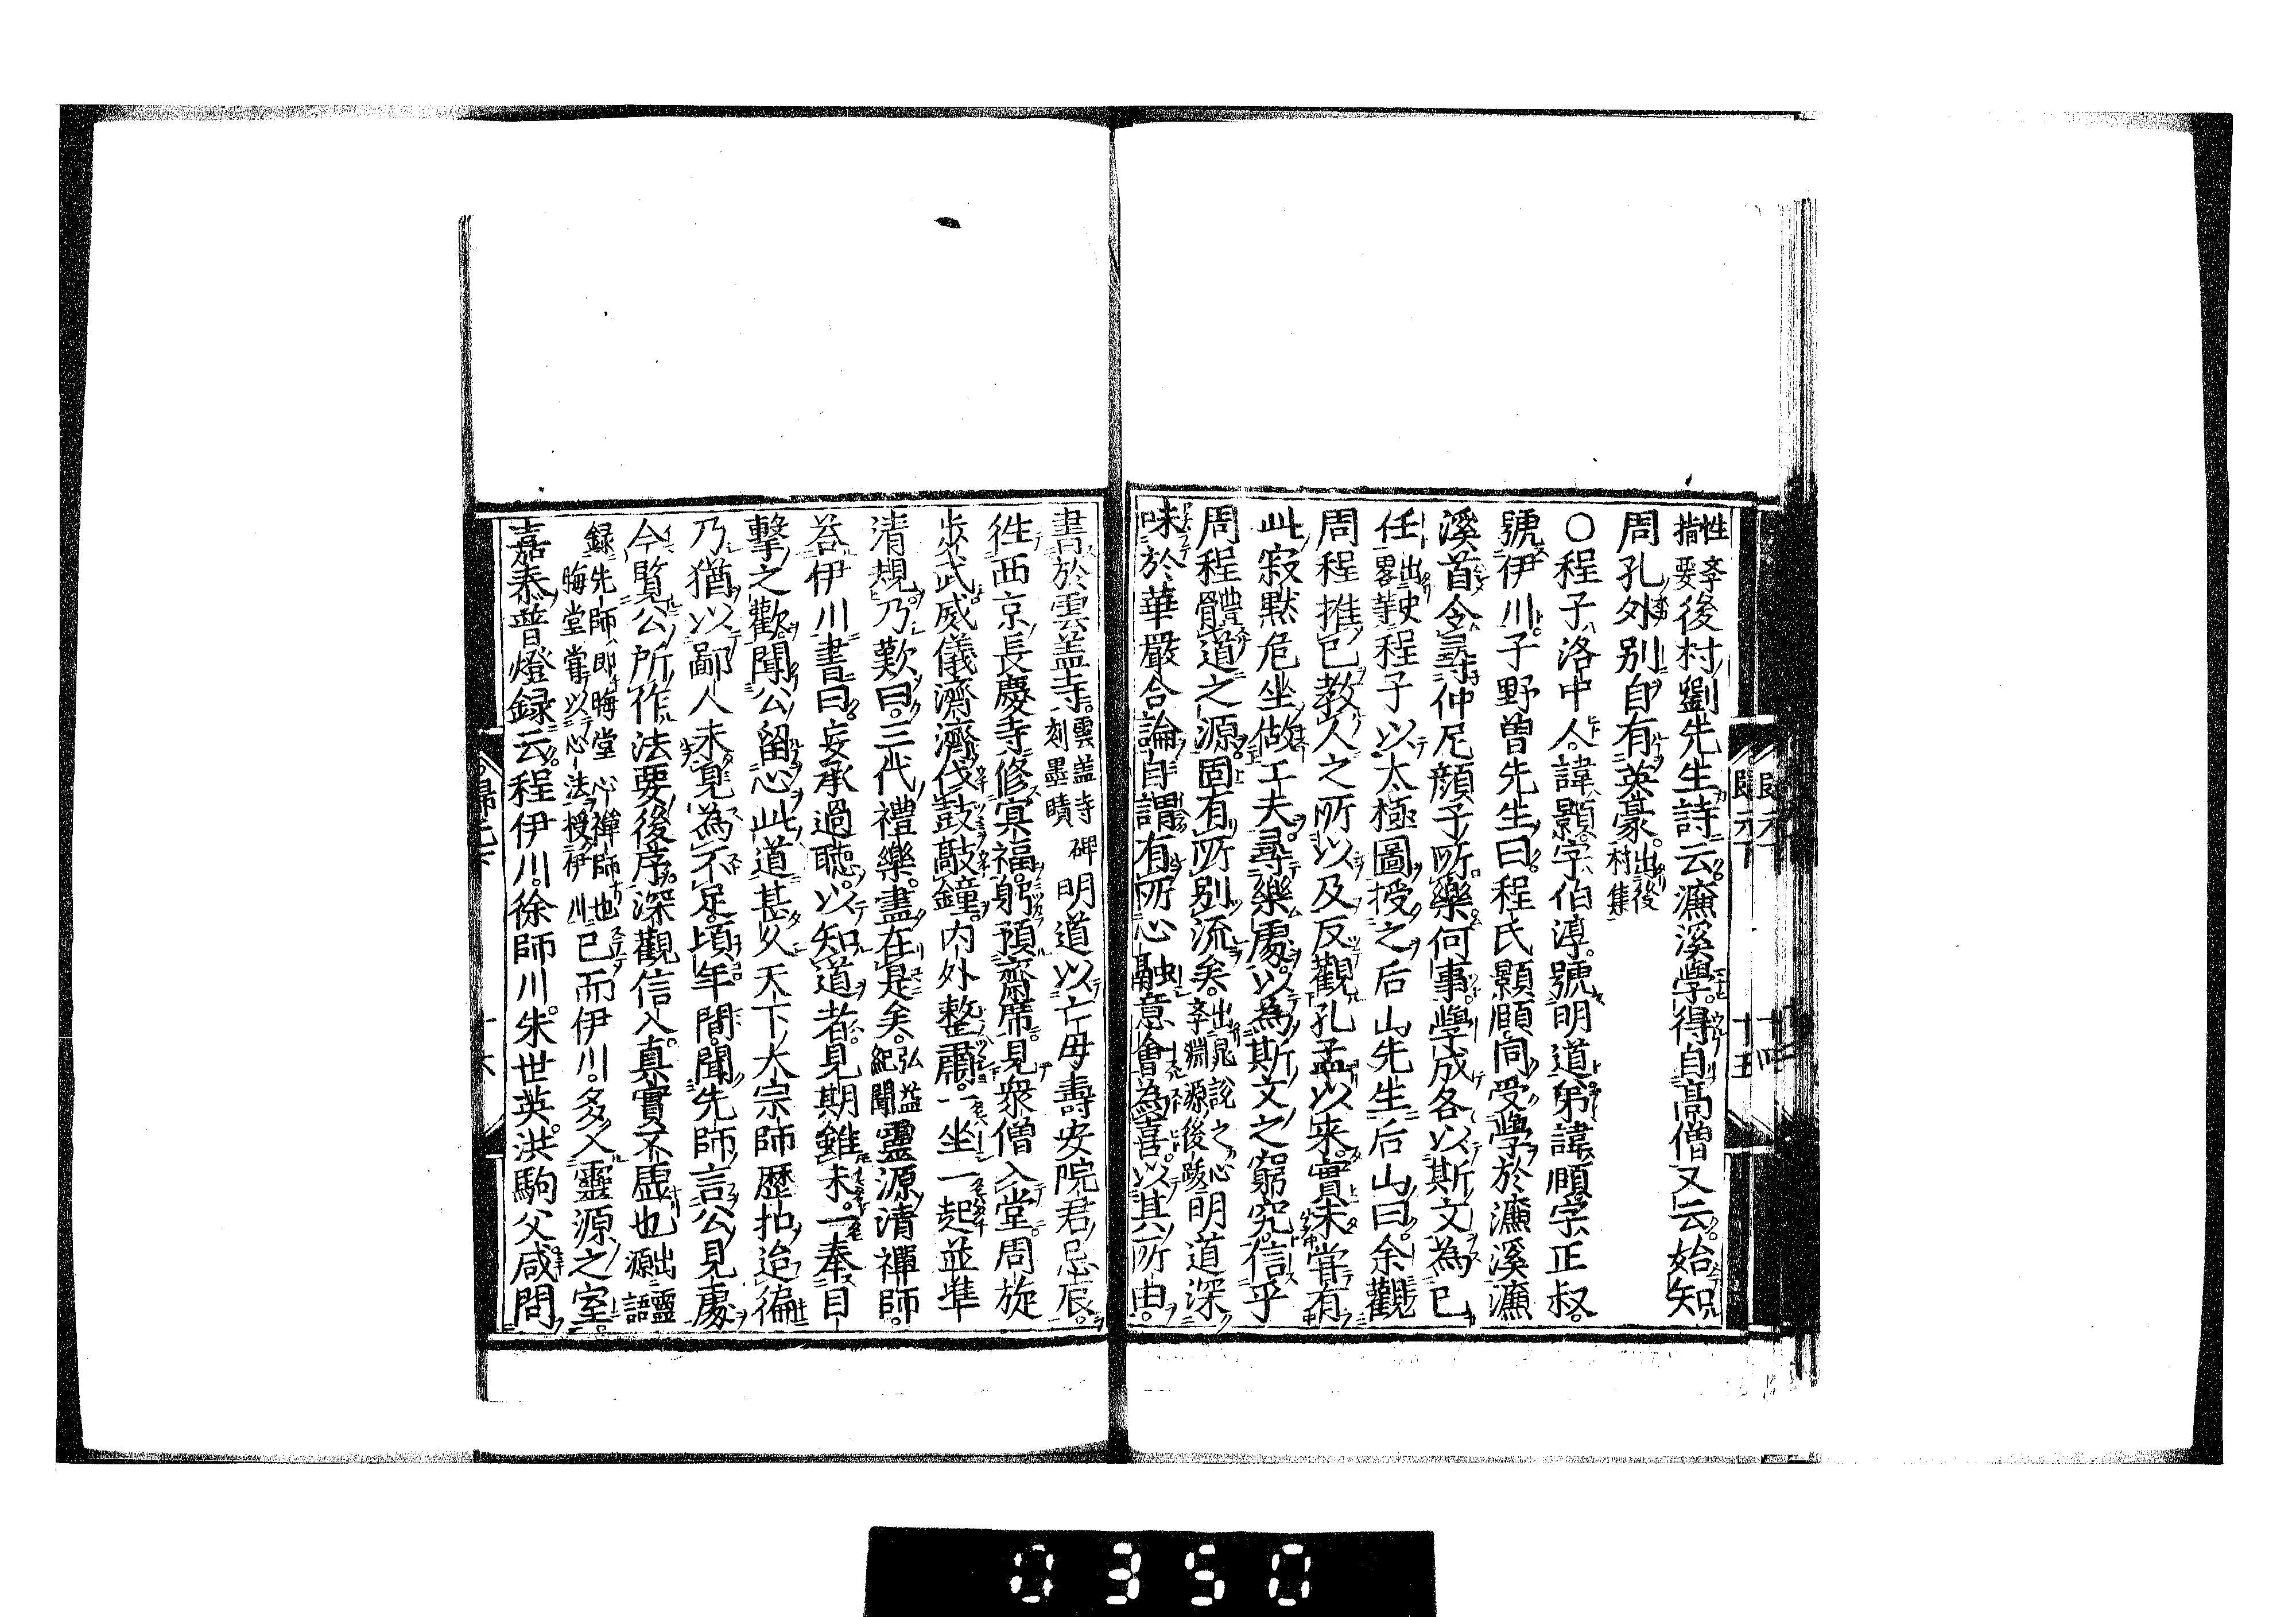 性学指要後村劉先生詩云濂溪學得自高僧又云始知
周孔外別自有英豪出後村集
○程子洛中人諱顥字伯淳號明道弟諱頤字正叔
號伊川子野曽先生曰程氏顥頤同受學於濂溪濂
溪首令尋仲尼顔子所樂何事學成各以斯文為已
任出史畧等程子以太極圖授之后山先生后山曰余觀
周程推已教人之所以及反觀孔孟以来實未嘗有
此寂黙危坐做工夫尋樂處以為斯文之窮究信乎
周程體道之源固有所別流矣出晁説之心学淵源後跋明道深
味於華嚴合論自謂有所心融意會為喜以其所由
書於雲盖寺雲盖寺碑刻墨蹟明道以亡母壽安院君忌辰
徃西京長慶寺修㝠福躬預齋席見衆僧入堂周旋
歩武威儀濟濟伐鼓敲鐘内外整肅一坐一起並準
清規乃歎曰三代禮樂盡在是矣弘益紀聞靈源清禪師
荅伊川書曰妄承過聴以知道者見期雖未一奉目
擊之歡聞公留心此道甚久天下大宗師歴扣迨徧
乃猶以鄙人未見為不足頃年間聞先師言公見處
今覧公所作法要後序深觀信入真實不虚也出靈源語
録先師即晦堂心禪師也晦堂甞以心法授伊川已而伊川多入靈源之室
嘉泰普燈録云程伊川徐師川朱世英洪駒父咸問
十四
十五
歸元下
十六
0350